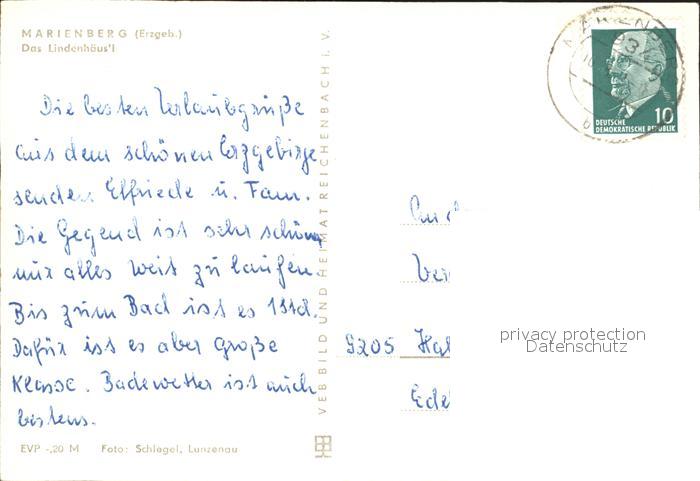 MARIENBERG (Erzgeb.)
Das Lindenhäus'l
Die besten Urlaubsgrüße
aus dem schönen Erzgebirge
senden Elfriede u. Fam.
Die Gegend ist sehr schön
nur alles weit zu laufen.
Bis zum Bad ist es 1 Std.
Dafür ist es aber große
Klasse. Badewetter ist auch
bestens.
EVP -,20 M Foto: Schlegel, Lunzenau
VEB BILD UND HEIMAT REICHENBACH i. V.
MARIENB
DEUTSCHE 10
DEMOKRATISCHE REPUBLIK
9205
privacy protection
Datenschutz